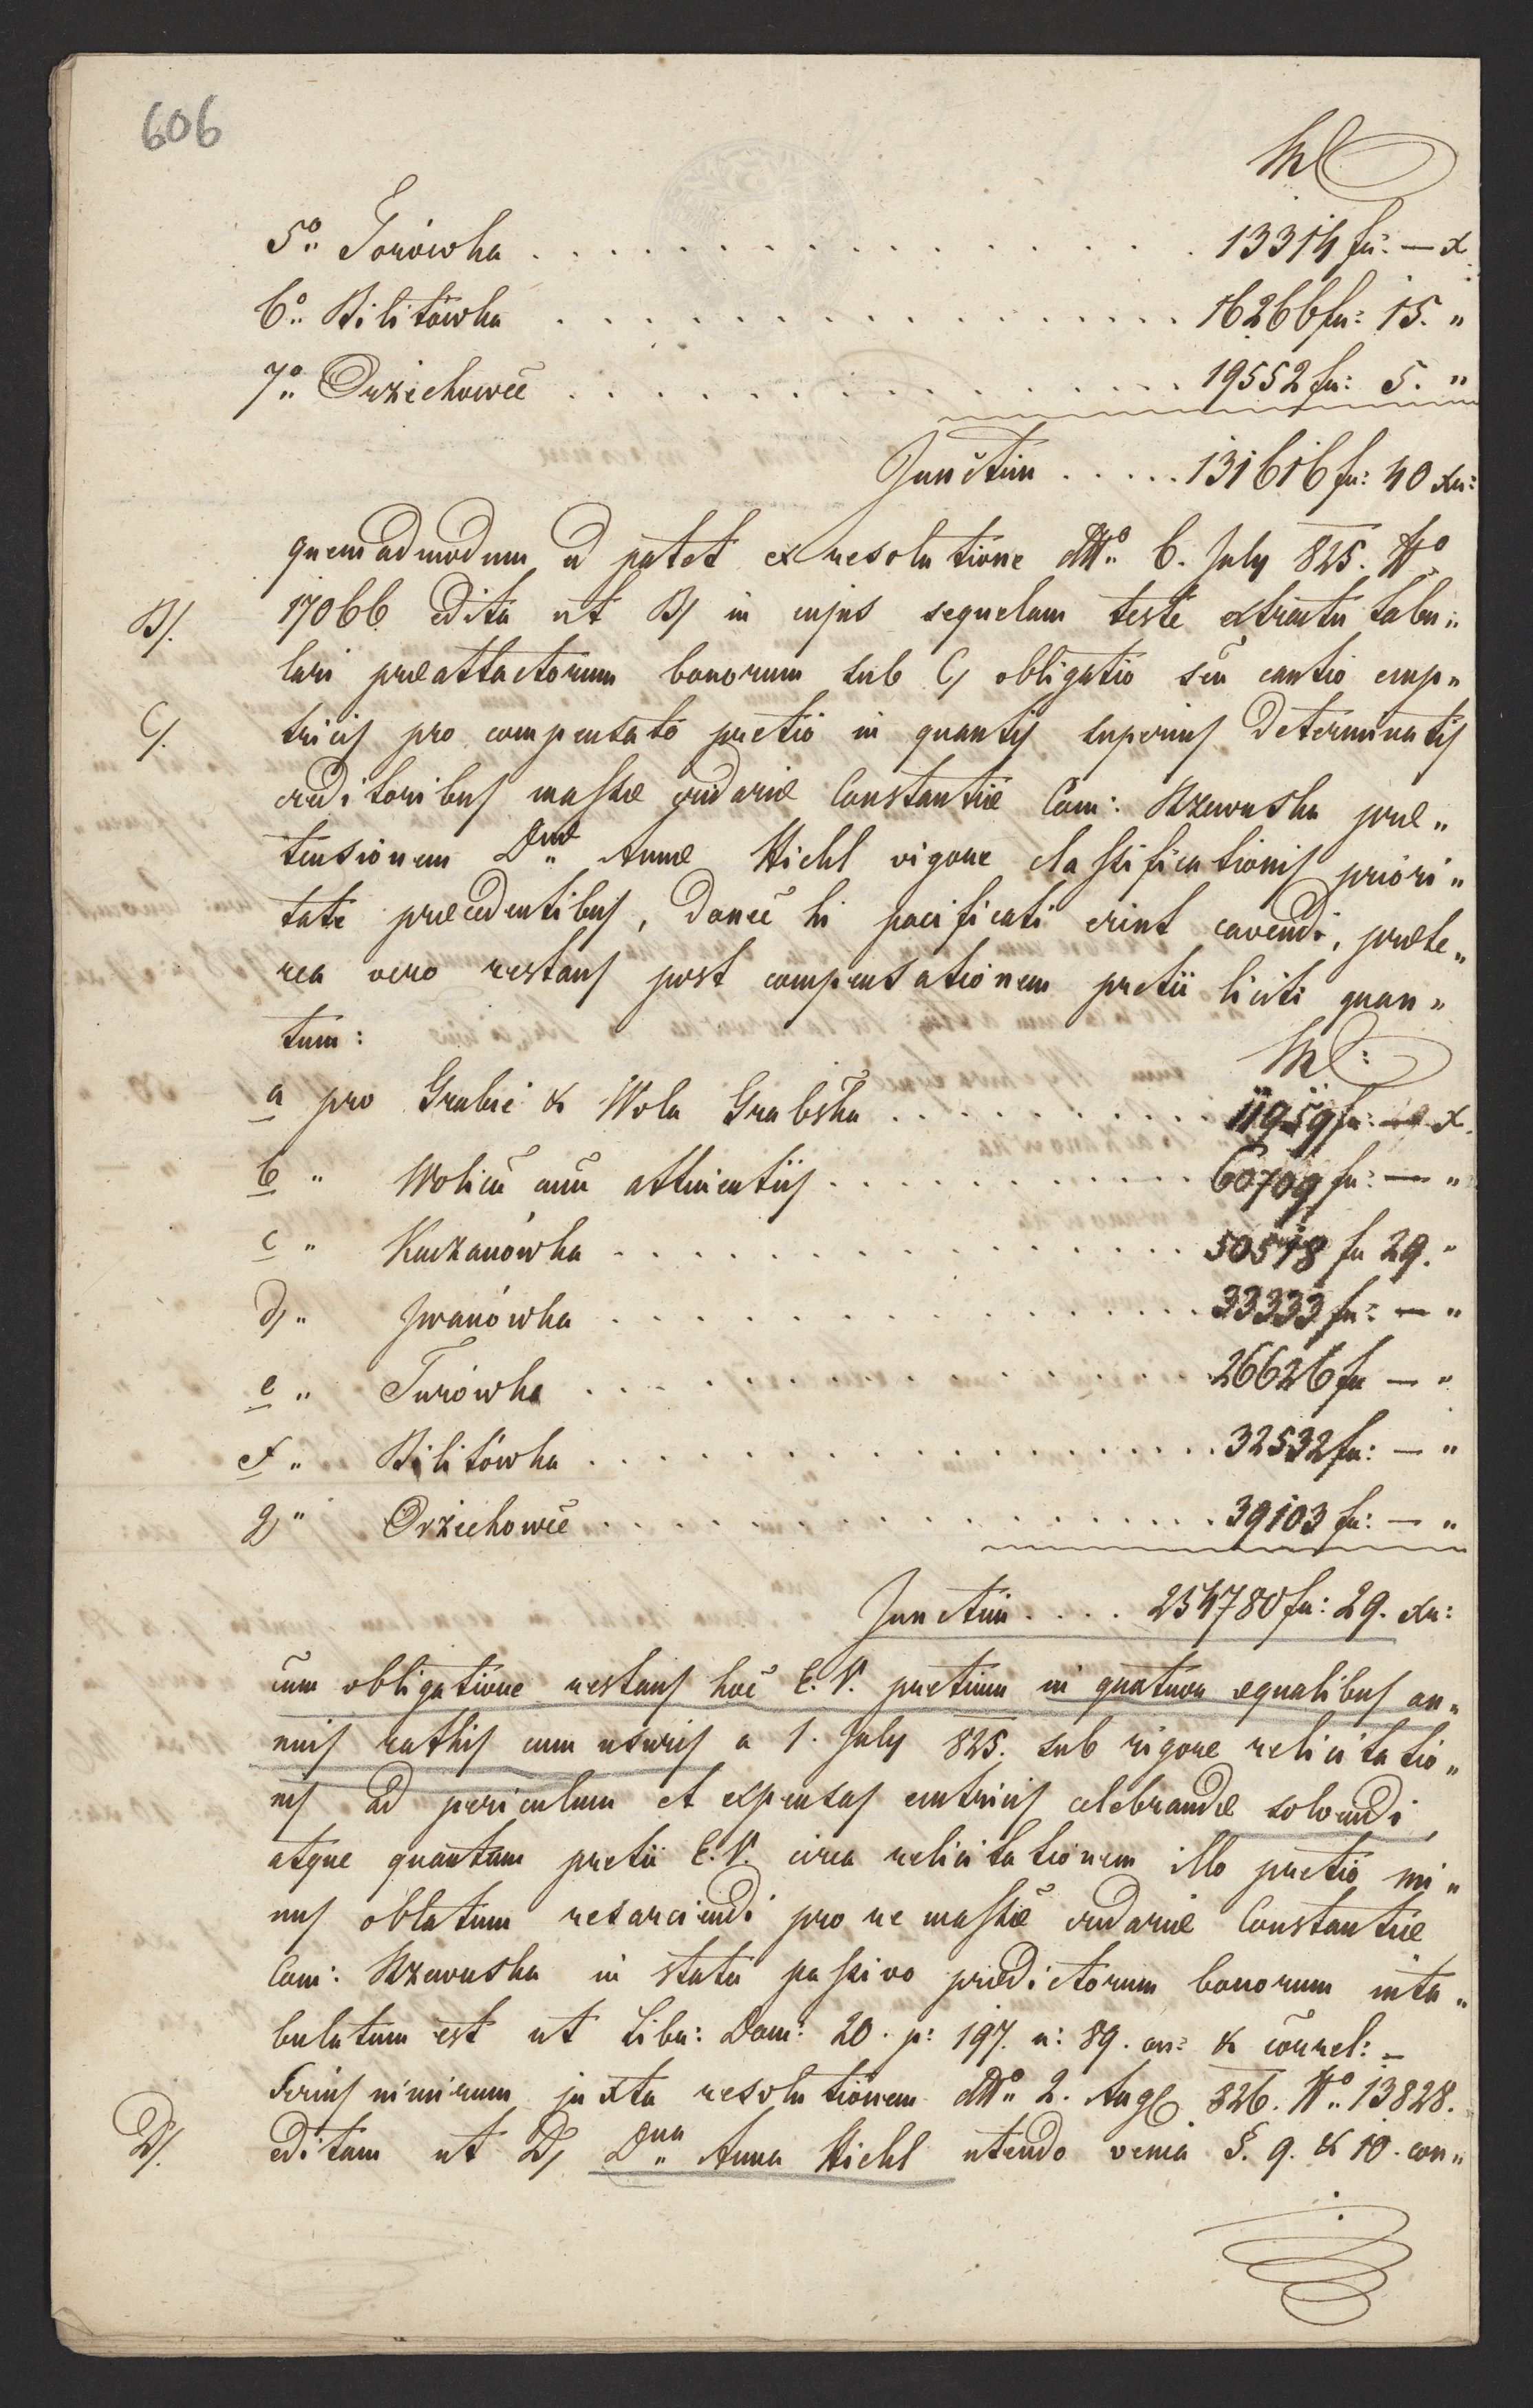 606
5° Torówka . . . . . . . . . . . . . . . . 13314 fr: — x
6° Bilitówka . . . . . . . . . . . . . . . . 16266 fr: 15. "
7° Orzechowce . . . . . . . . . . . . . . . . 19552 fr: 5. "
Junctim . . . . . 131616 fr: 40 xr:
quemadmodum id patet ex resolutione dtto 6. July 825. N°
B/. 17066 edita ut B/ in cujus sequelam teste extractu tabu„
lari præattactorum bonorum sub C/ obligatio seu cautio emp„
C/. tricis pro compensato pretio in quantis superius determinatis
creditoribus massæ cridariæ Constantiæ Com: Rzewuska præ„
tensionem Dnæ Annæ Hiehl vigore classificationis priori„
tate præcedentibus, donec hi pacificati erint cavendi, præte„
rea vero restans post compensationem pretii liciti quan„
tum:
a pro Grabie & Wola Grabska . . . . . . . . . . 11959 fr: — x.
b " Wolica cum attinentiis . . . . . . . . . . . . 60709 fr: — "
c " Kaczanówka . . . . . . . . . . . . . . . . 50518 fr 29. "
d/ " Iwanówka . . . . . . . . . . . . . . . . 33333 fr: — "
e " Turówka . . . . . . . . . . . . . . . . 26626 fr — "
f " Bilitówka . . . . . . . . . . . . . . . . 32532 fr: — "
g/ " Orzechowce . . . . . . . . . . . . . . . . 39103 fr: — "
Junctim . . . . 254780 fr: 29. xr:
cum obligatione restans hoc E.V. pretium in quatuor æqualibus an„
nuis rathis cum usuris a 1. July 825. sub rigore relicitatio„
nis ad periculum et expensas emtricis celebrandæ solvendi
atque quantum pretii E.V. circa relicitationem illo pretio mi„
nus oblatum resarciendi pro re massæ cridariæ Constantiæ
Com: Rzewuska in statu passivo prædictorum bonorum inta„
bulatum est ut Libr: Dom: 20. p: 197. n: 89. on: & correl: –
Serius nimirum juxta resolutionem dtto 2. Aug 826. N° 13828.
D/. editam ut D/ Dna Anna Hiehl utendo venia §. 9. & 10. con„